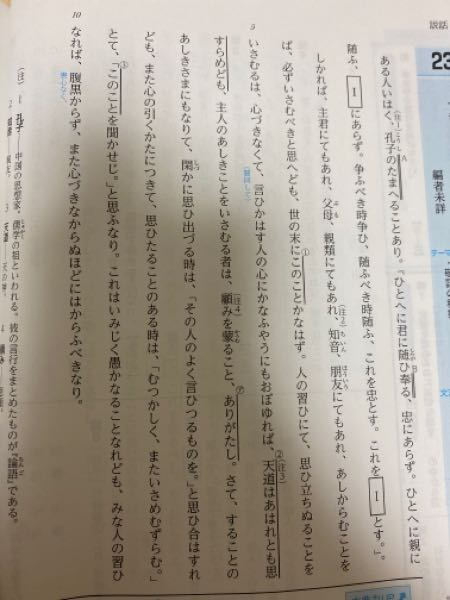 説話
23
編者未詳
テーマ
ある人いはく、孔子のたまへることあり。「ひとへに君に随ひ奉る、忠にあらず。ひとへに親に
随ふ、Ⅰにあらず。争ふべき時争ひ、随ふべき時随ふ、これを忠とす。これをⅠとす。」。
しかれば、主君にてもあれ、父母、親類にてもあれ、知音、朋友にてもあれ、あしからむことを
ば、必ずいさむべきと思へども、世の末にこのことかなはず。人の習ひにて、思ひ立ちぬることを
いさむるは、心づきなくて、言ひかはす人の心にかなふやうにもおぼゆれば、天道はあはれとも思
すらめども、主人のあしきことをいさむる者は、顧みを蒙ること、ありがたし。さて、することの
あしきさまにもなりて、閑かに思ひ出づる時は、「その人のよく言ひつるものを。」と思ひ合はすれ
ども、また心の引くかたにつきて、思ひたることのある時は、「むつかしく、またいさめむずらむ。」
とて、「このことを聞かせじ。」と思ふなり。これはいみじく愚かなることなれども、みな人の習ひ
なれば、腹黒からず、また心づきなからぬほどにはからふべきなり。
(注) 1 孔子―中国の思想家。儒学の祖といわれる。彼の言行をまとめたものが『論語』である。